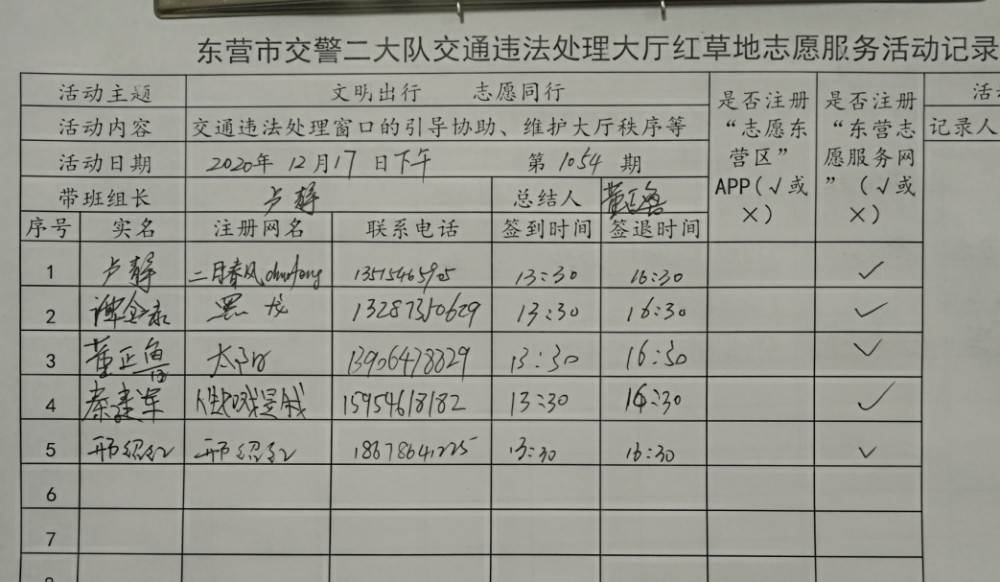 东营市交警二大队交通违法处理大厅红草地志愿服务活动记录
活动主题 文明出行 志愿同行 是否注册“志愿东营区”APP(√或×) 是否注册“东营志愿服务网”(√或×) 活
活动内容 交通违法处理窗口的引导协助、维护大厅秩序等 记录人
活动日期 2020年12月17日下午 第1054期
带班组长 卢静 总结人 董正鲁
序号 实名 注册网名 联系电话 签到时间 签退时间
1 卢静 二月春风 13515465905 13:30 16:30 ✓
2 黑龙 13287350629 13:30 16:30 ✓
3 董正鲁 13906478829 13:30 16:30 ✓
4 秦建军 15954618182 13:30 16:30 ✓
5 邢绍红 邢绍红 18678641225 13:30 16:30 ✓
6
7